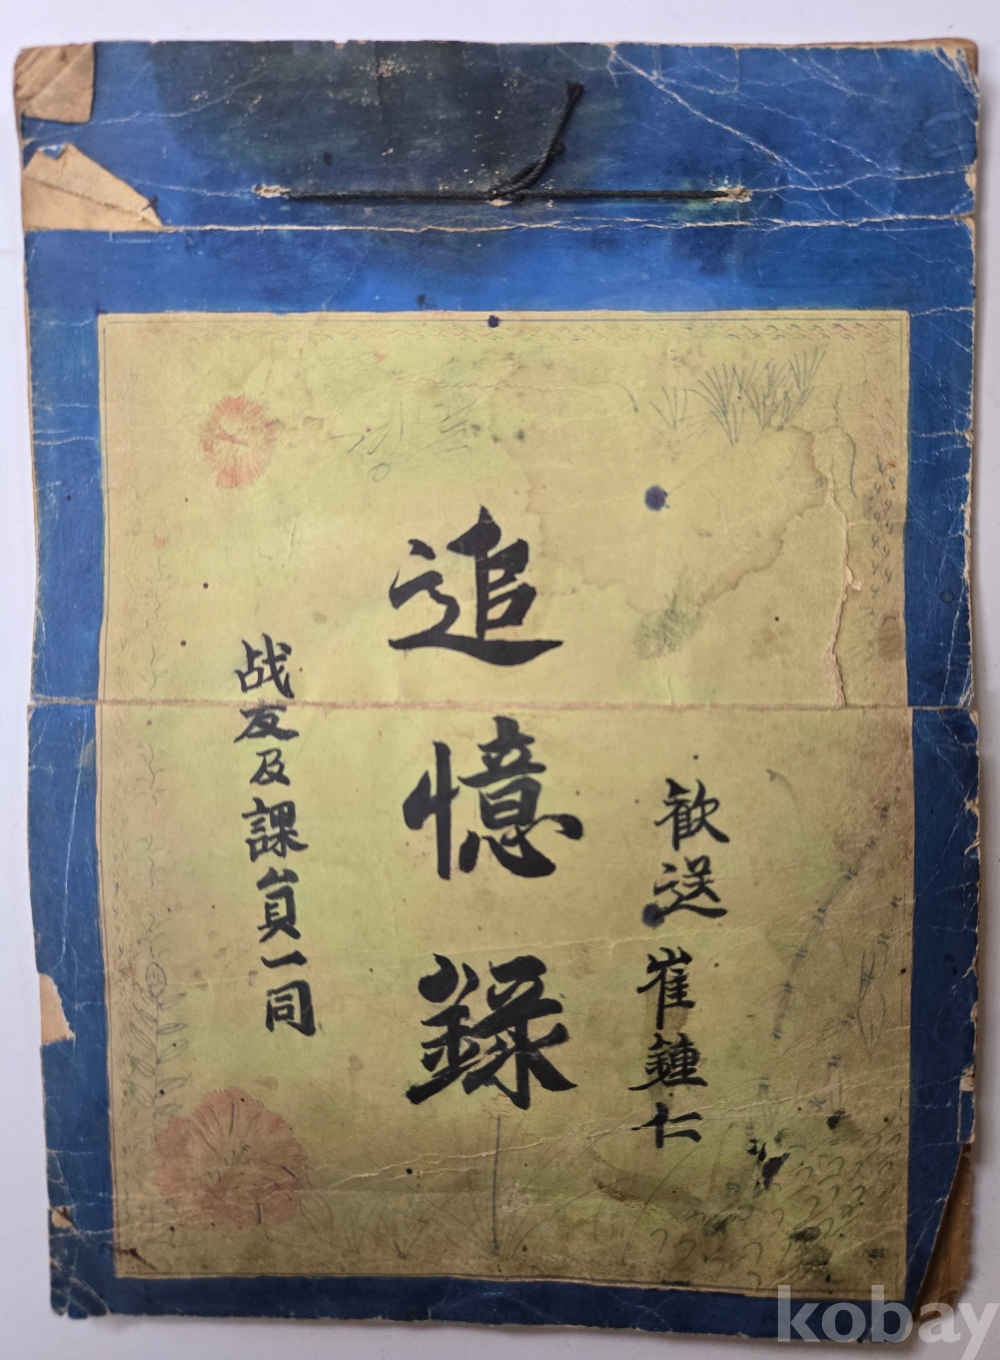 歓送 崔鍾仁
追憶錄
战友及課員一同
kobay